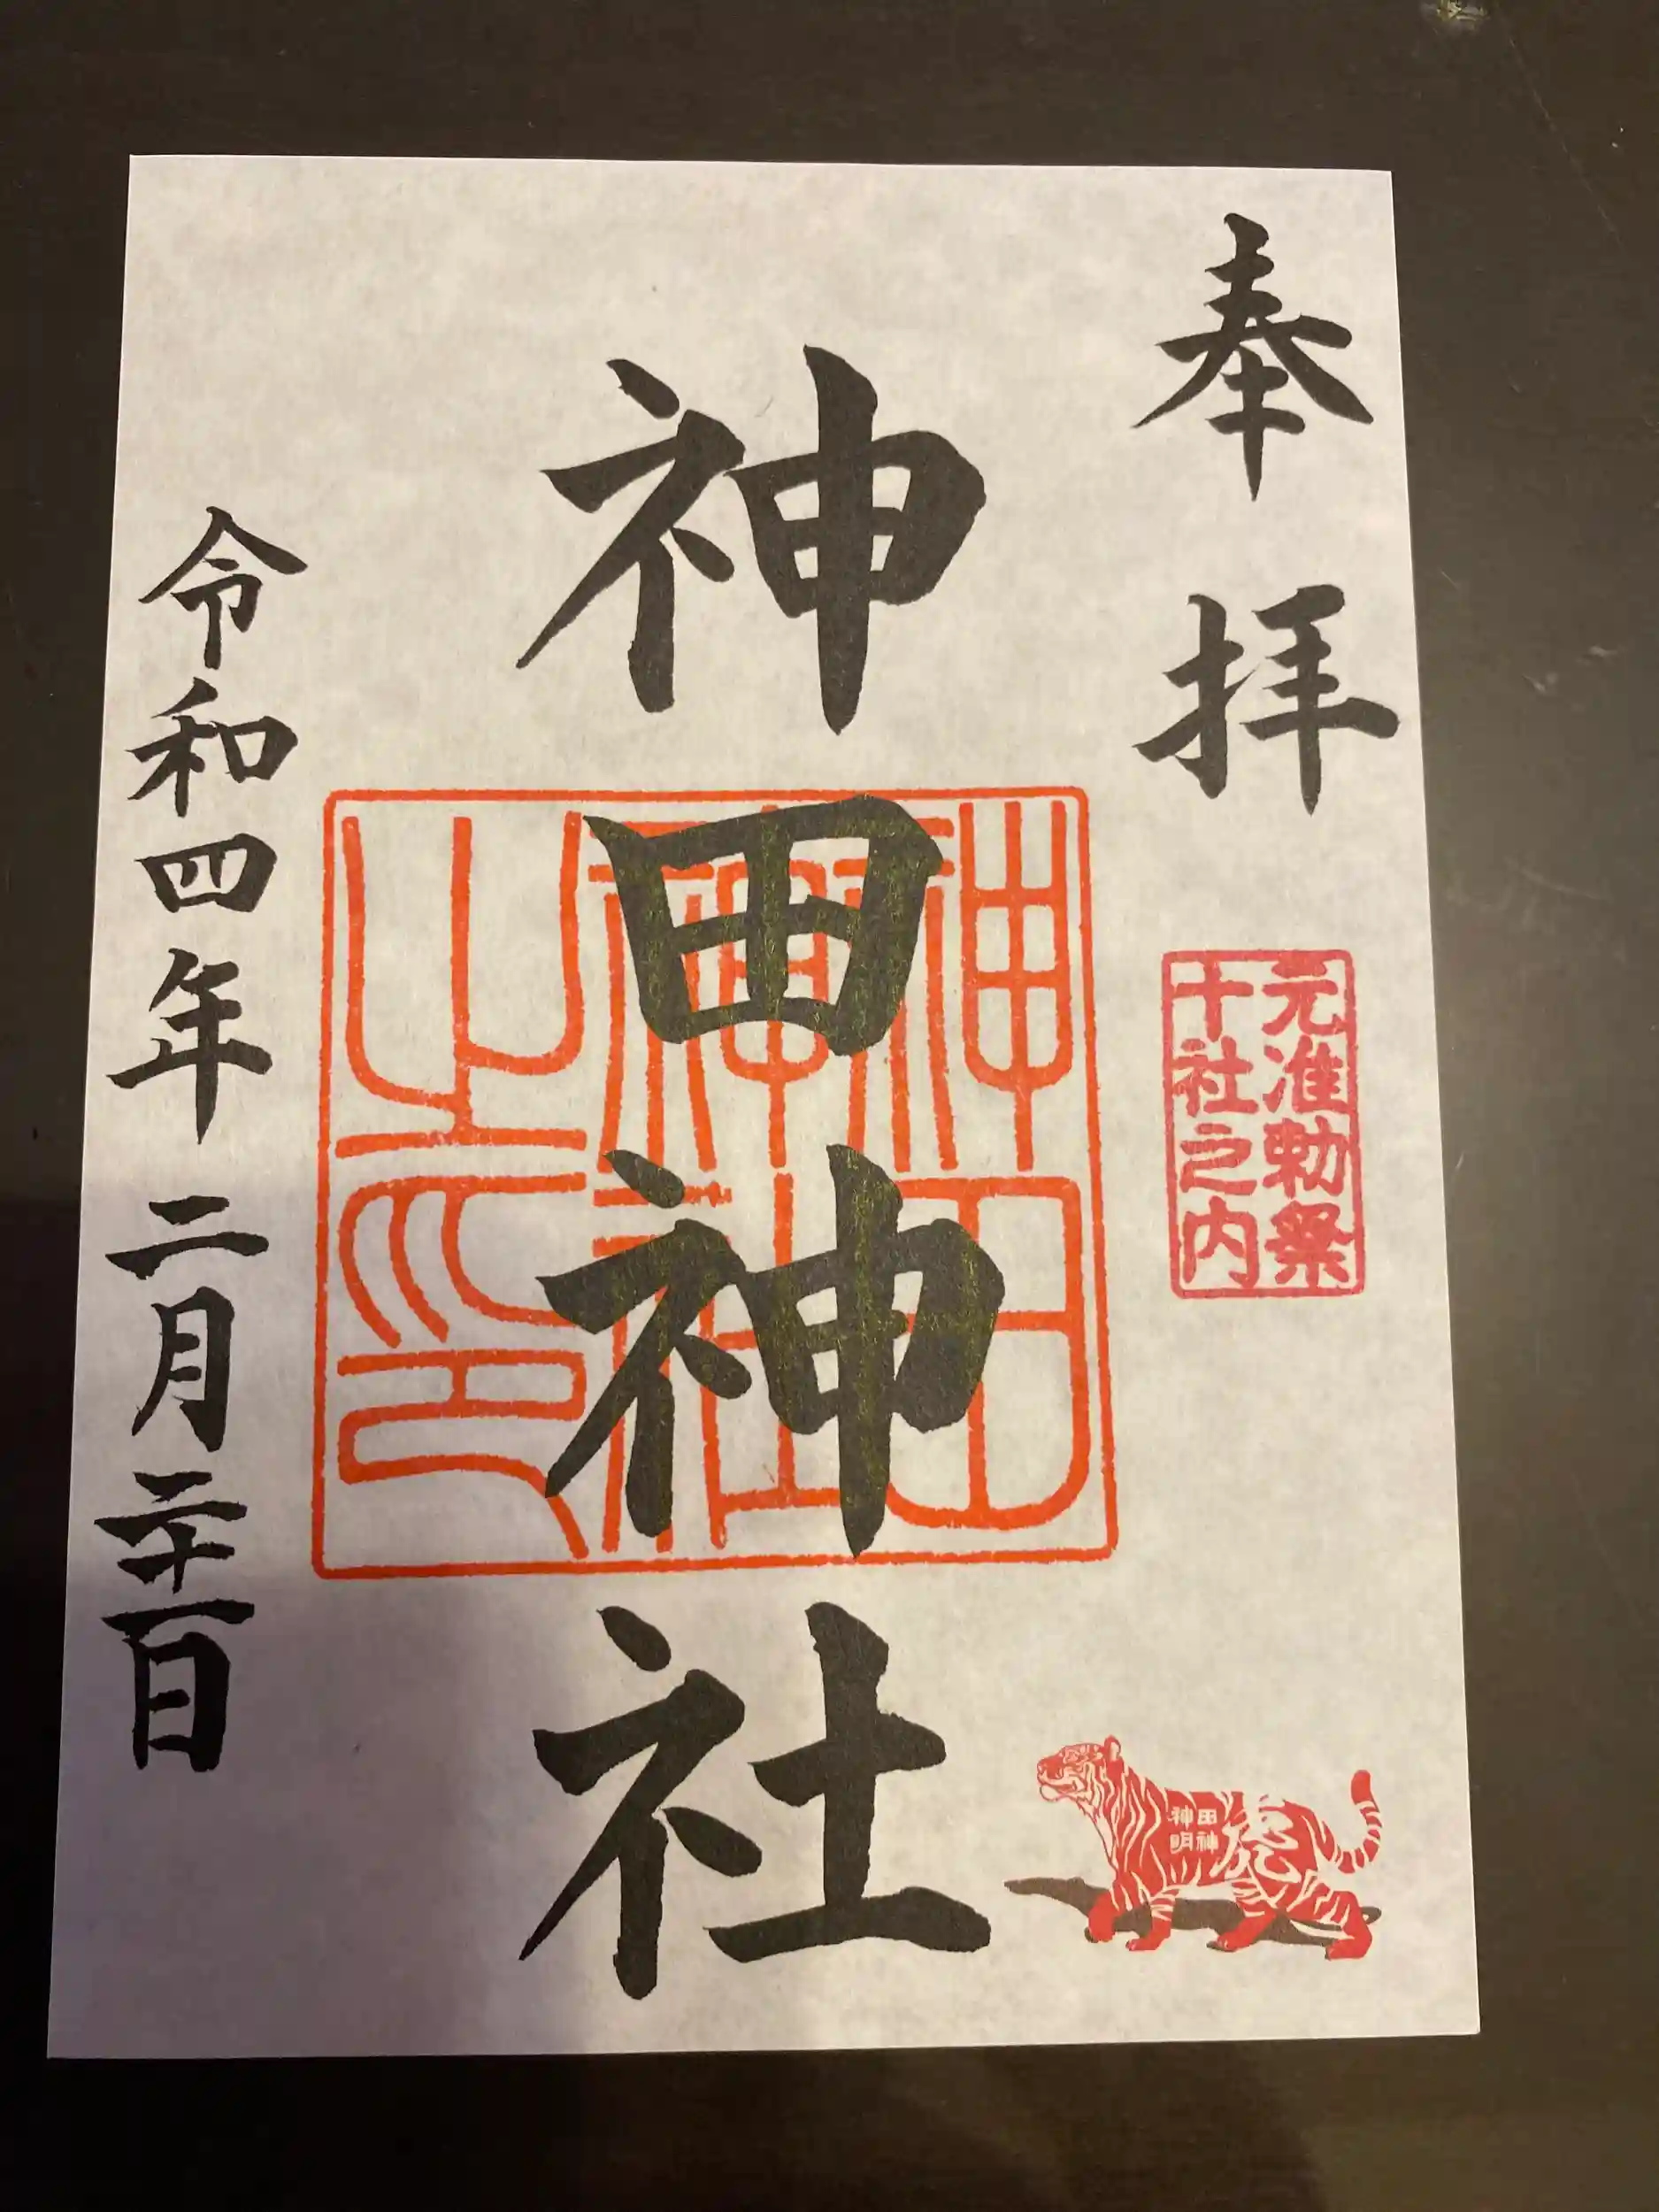 奉拝
元准勅祭
十社之内
神田神社
神田
神社
之印
令和四年 二月二十二日
神田
明神
虎